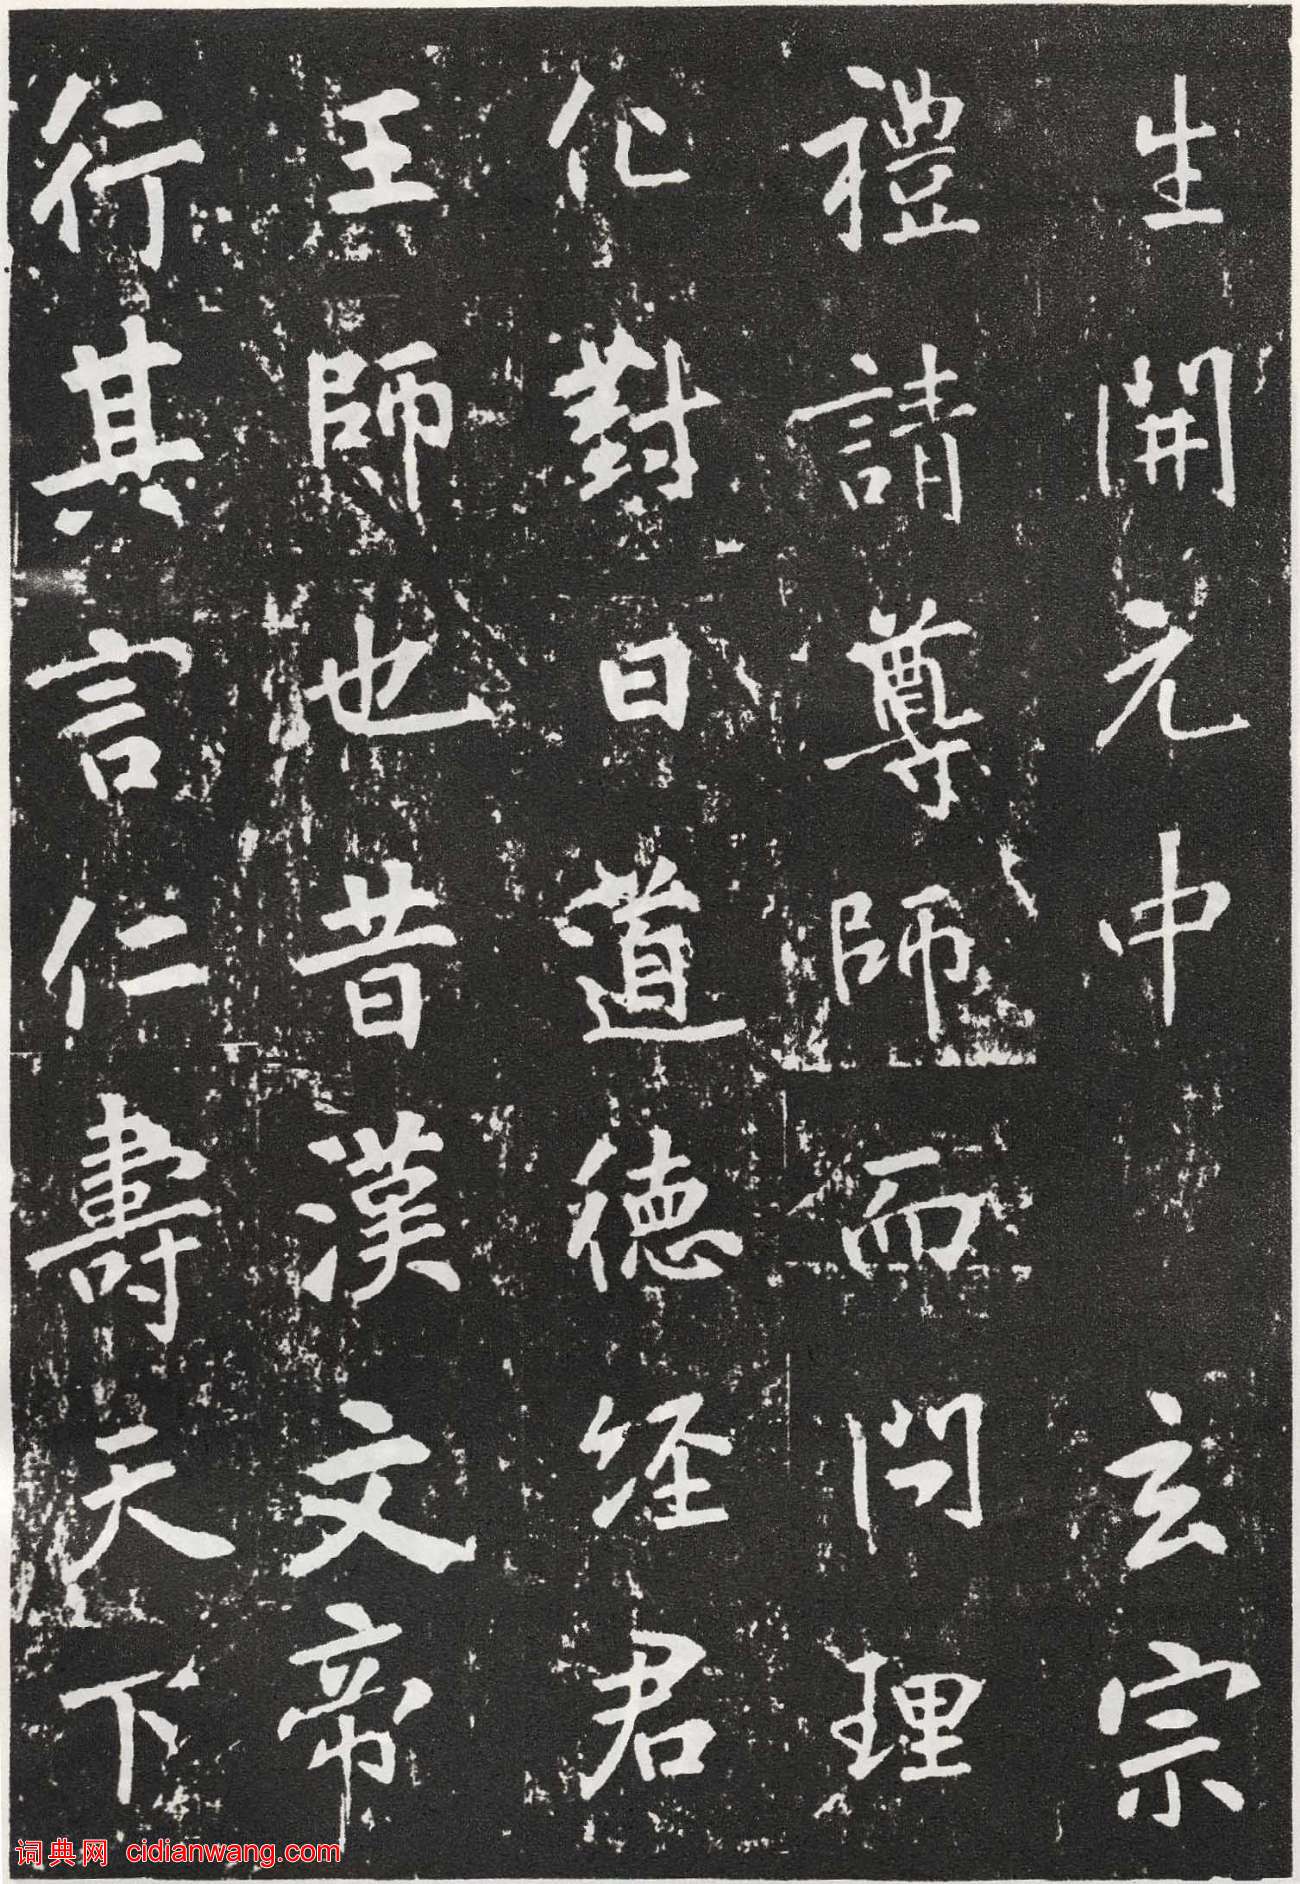 生開元中 玄宗
禮請尊師而問理
化對曰道德經君
王師也昔漢文帝
行其言仁壽天下
词典网 cidianwang.com